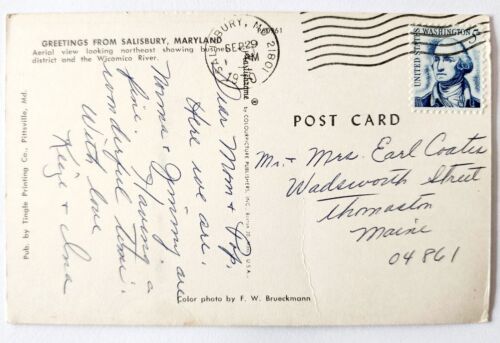 GREETINGS FROM SALISBURY, MARYLAND
Aerial view looking northeast showing business
district and the Wicomico River.
SALISBURY, MD 21801
SEP 29
AM
1970
WASHINGTON
UNITED STATES
5
Dear Mom & Pop,
Here we are.
Norma & Jimmy are
fine. Having a
wonderful time.
With love
Ina
POST CARD
Mr. & Mrs. Earl Coates
Wadsworth Street
Thomaston
Maine
04861
Pub. by Tingle Printing Co., Pittsville, Md.
by COLOURPICTURE PUBLISHERS, INC.
U.S.A.
Color photo by F. W. Brueckmann